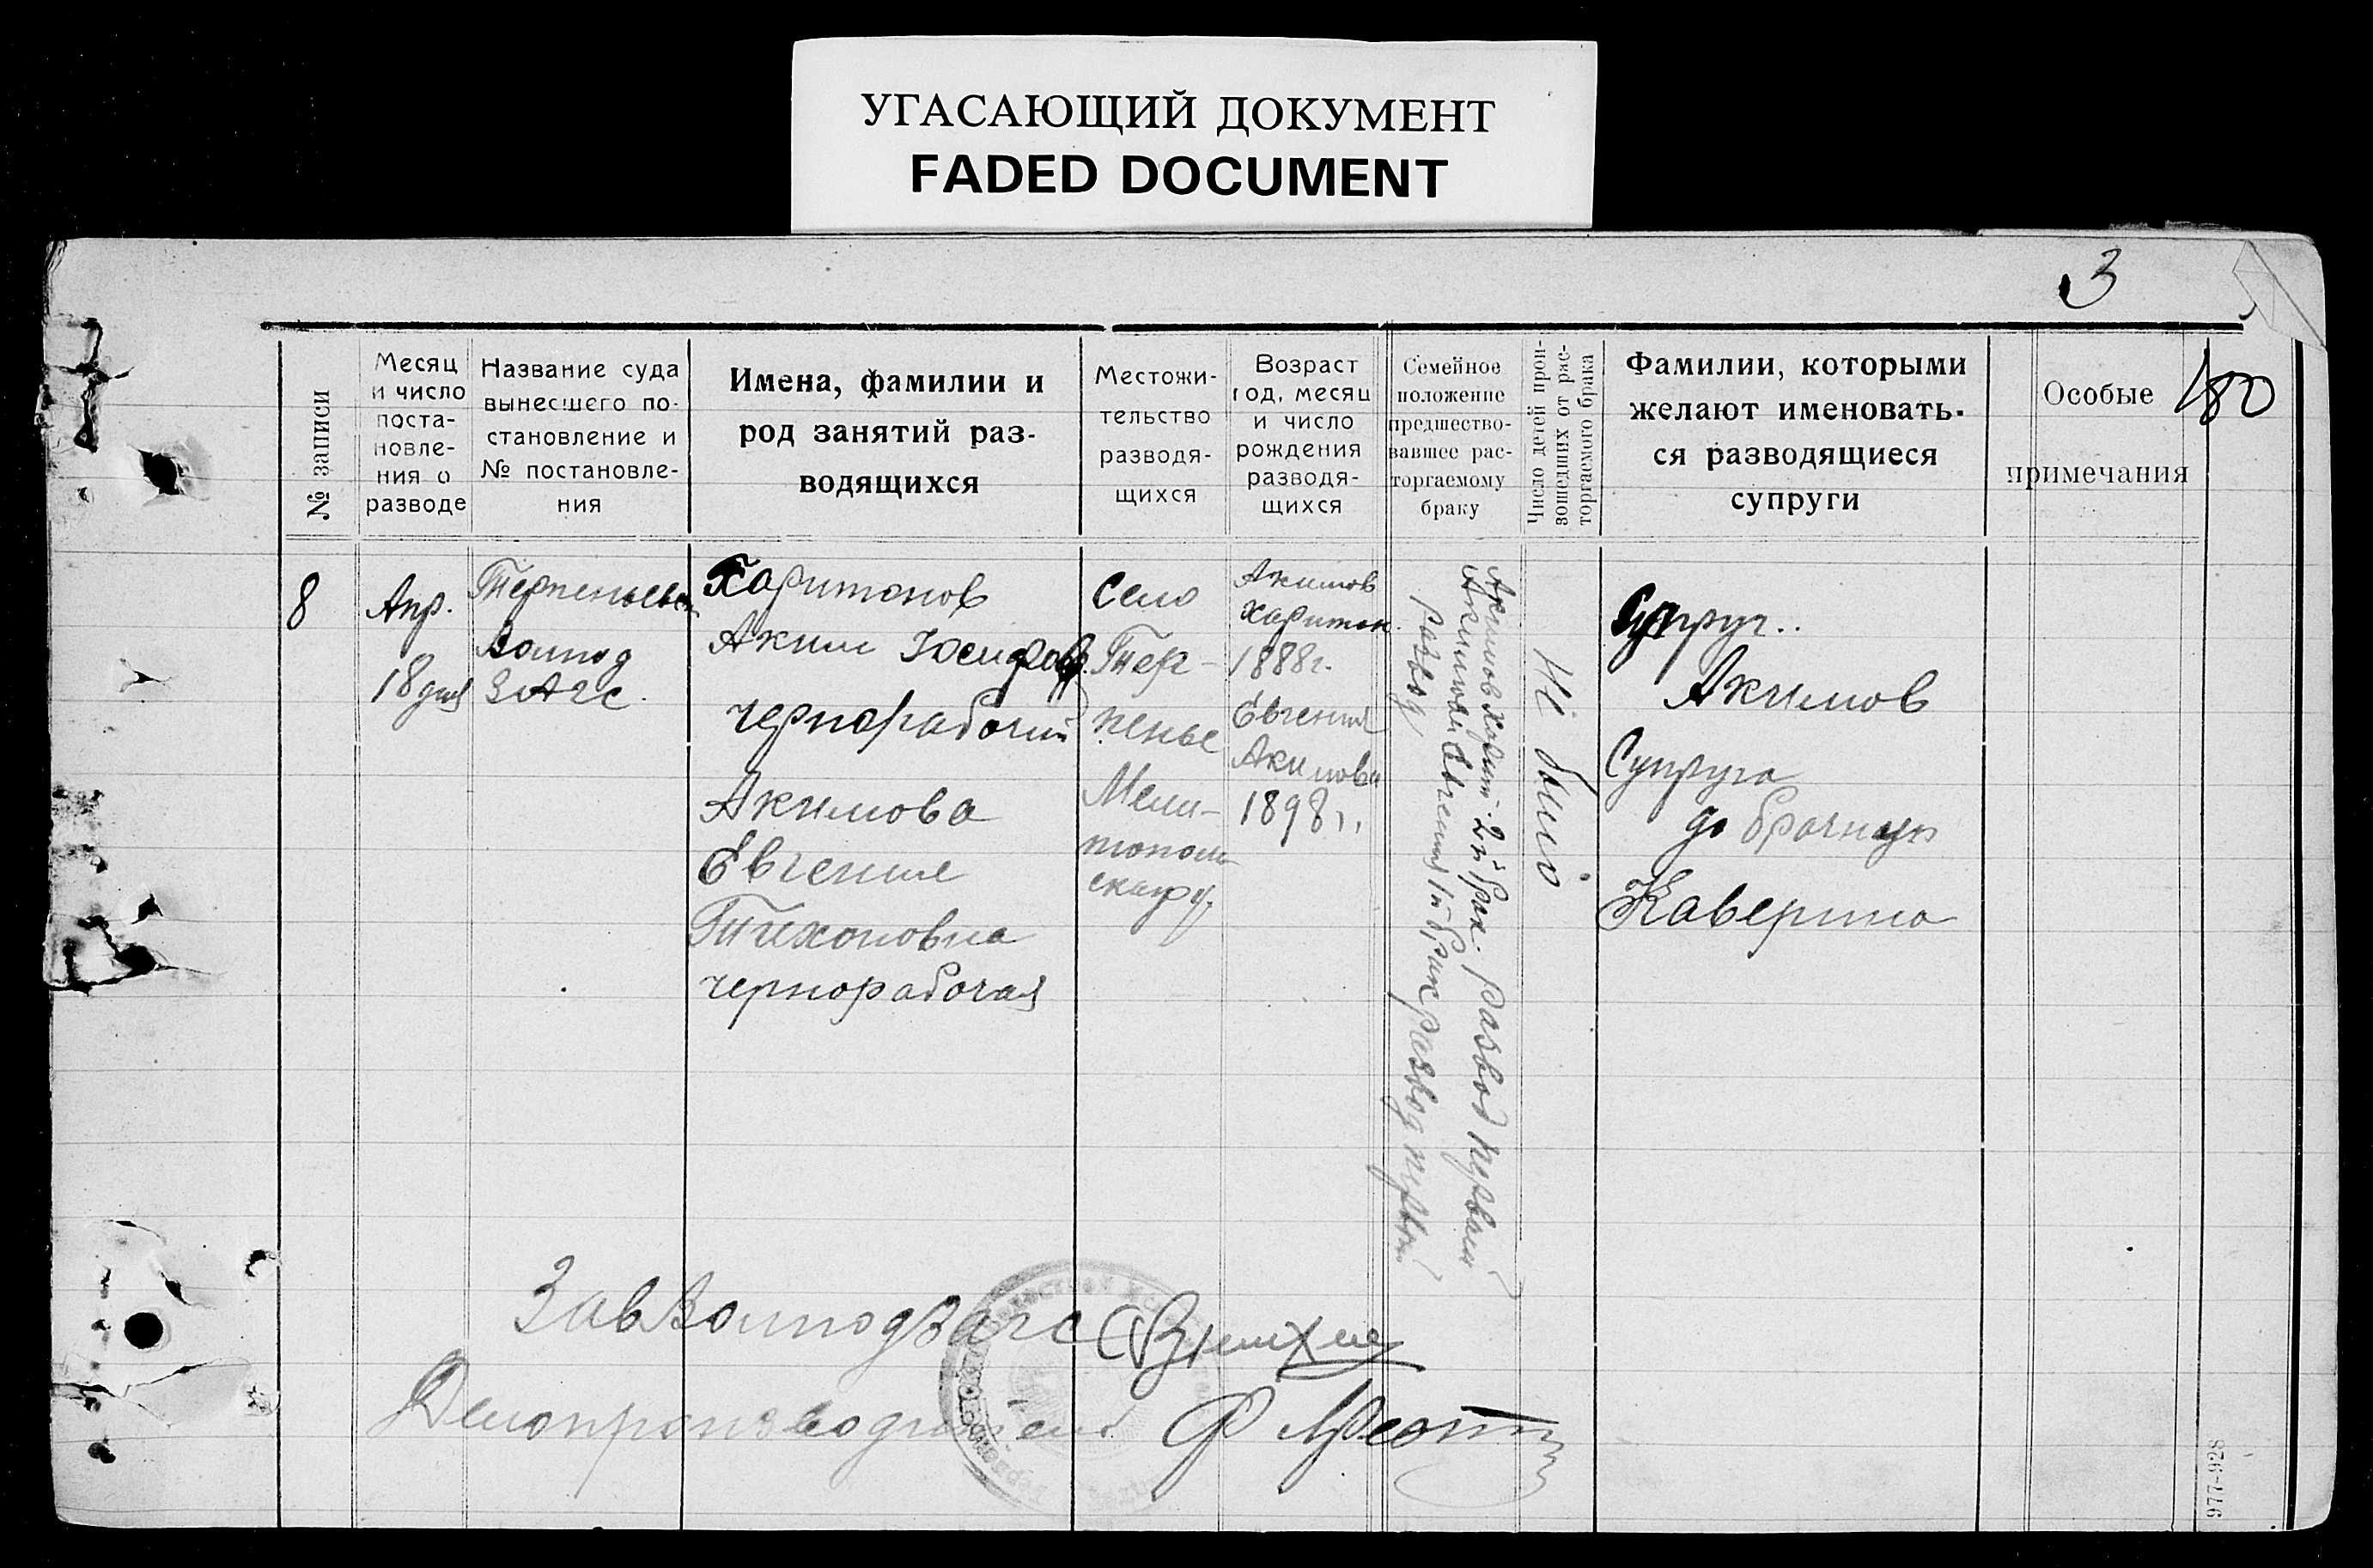 УГАСАЮЩИЙ ДОКУМЕНТ
FADED DOCUMENT
3
180
№ записи
Месяц
и число
поста-
новле-
ния о
разводе
Название суда
вынесшего по-
становление и
№ постановле-
ния
Имена, фамилии и
род занятий раз-
водящихся
Местожи-
тельство
разводя-
щихся
Возраст
год, месяц
и число
рождения
разводя-
щихся
Семейное
положение
предшество-
вавшее рас-
торгаемому
браку
Число детей прои-
зошедших от рас-
торгаемого брака
Фамилии, которыми
желают именовать-
ся разводящиеся
супруги
Особые
примечания
8
Апр.
18 дня
Волпод
ЗАГС
Харитонов
Аким
чернорабочий
Акимова
Евгения
Тихоновна
чернорабочая
Село
Тер-
пенье
Мели-
Акимов
Харитон.
1888г.
Евгения
Акимова
1898г.
Акимов Харит. 2й брак. развод первый
Акимовой Евгения 1й брак развод первый
развод
Не было
Супруг..
Акимов
Супруга
до брачную
Каверина
ЗавВолподЗагс
Делопроизводитель
977-928